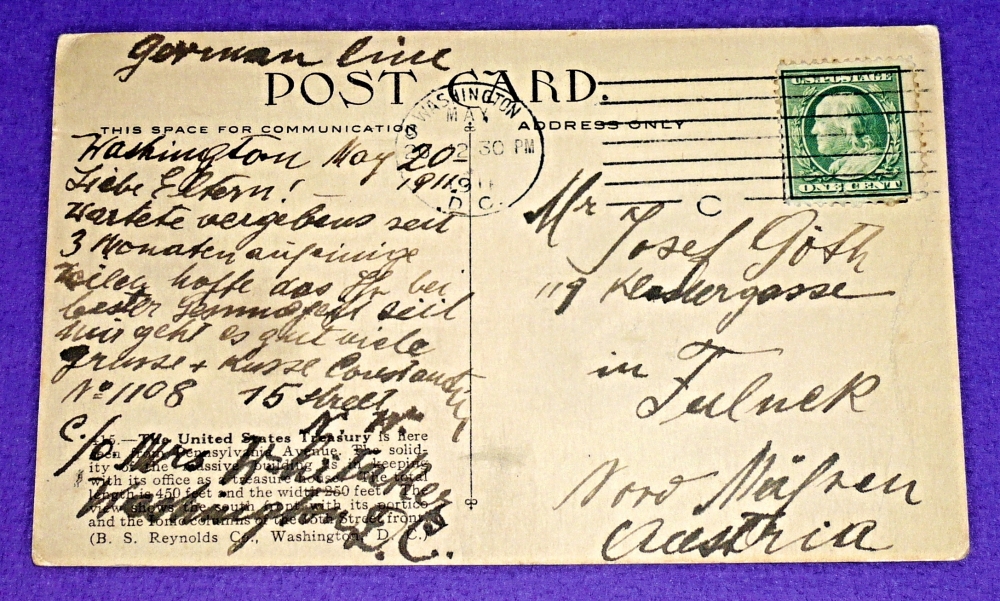 German line
POST CARD.
THIS SPACE FOR COMMUNICATION
ADDRESS ONLY
WASHINGTON
MAY
2 30 PM
D.C.
U.S. POSTAGE
ONE CENT
C
Washington May 20
1911
Liebe Eltern!
Wartete vergebens seit
3 Monaten auf einige
Zeilen hoffe das Ihr bei
bester Gesundheit seid
mir geht es gut viele
Grusse + Kusse
No 1108 15 Street
N. W.
c/o Mrs Whitaker
Washington D.C.
Mr Josef Göth
119 Klostergasse
in
Fulnek
Nord Mähren
Austria
—The United States Treasury is here
seen from Pennsylvania Avenue. The solid-
ity of the massive building is in keeping
with its office as a treasure house. The total
length is 450 feet and the width 250 feet. The
view shows the south front with its portico
and the Ionic columns of the 15th Street front.
(B. S. Reynolds Co., Washington, D. C.)